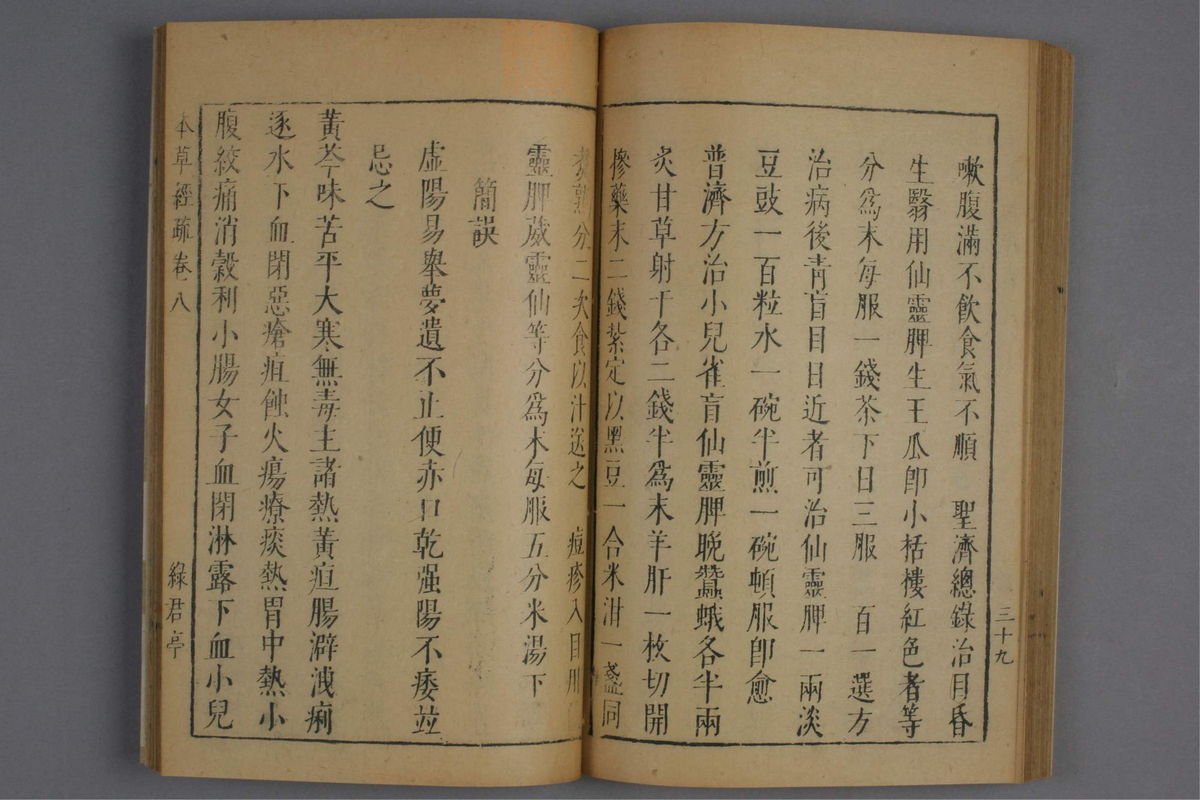 嗽腹滿不飲食氣不順　聖濟總錄治目昏
生翳用仙靈脾生王瓜卽小栝樓紅色者等
分爲末每服一錢茶下日三服　百一選方
治病後靑盲目日近者可治仙靈脾一兩淡
豆豉一百粒水一碗半煎一碗頓服卽愈
普濟方治小兒雀盲仙靈脾晚蠶蛾各半兩
炙甘草射干各二錢半爲末羊肝一枚切開
摻藥末二錢紮定以黑豆一合米泔一盞同
三十九
煮熟分二次食以汁送之　痘疹入目用
靈脾葳靈仙等分爲末每服五分米湯下
簡誤
虛陽易舉夢遺不止便赤口乾强陽不痿並
忌之
黃芩味苦平大寒無毒主諸熱黃疸腸澼洩痢
逐水下血閉惡瘡疽蝕火瘍療痰熱胃中熱小
腹絞痛消穀利小腸女子血閉淋露下血小兒
本草經疏卷八
綠君亭